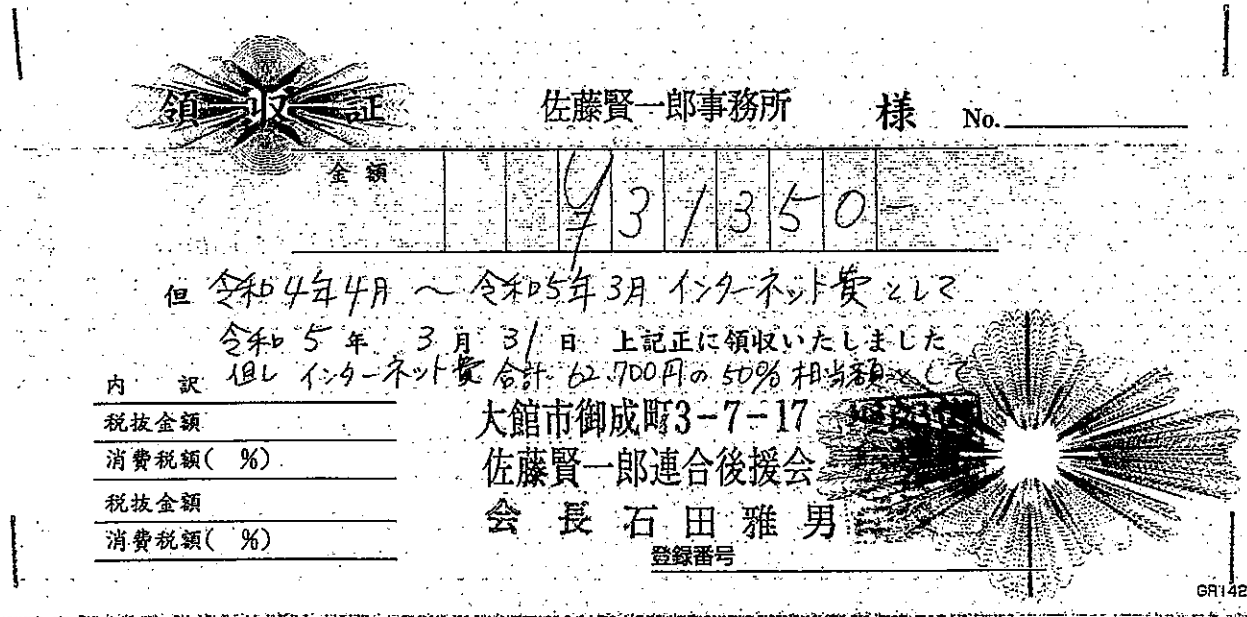 領収証 佐藤賢一郎事務所 様 No.
金額 ¥31350-
但 令和4年4月 ~ 令和5年3月 インターネット費として
令和5年 3月 31日 上記正に領収いたしました
内訳 但し インターネット費 合計 62.700円の50%相当額として
税抜金額
消費税額( %)
税抜金額
消費税額( %)
大館市御成町3-7-17
佐藤賢一郎連合後援会
会長 石田雅男
登録番号
GR142